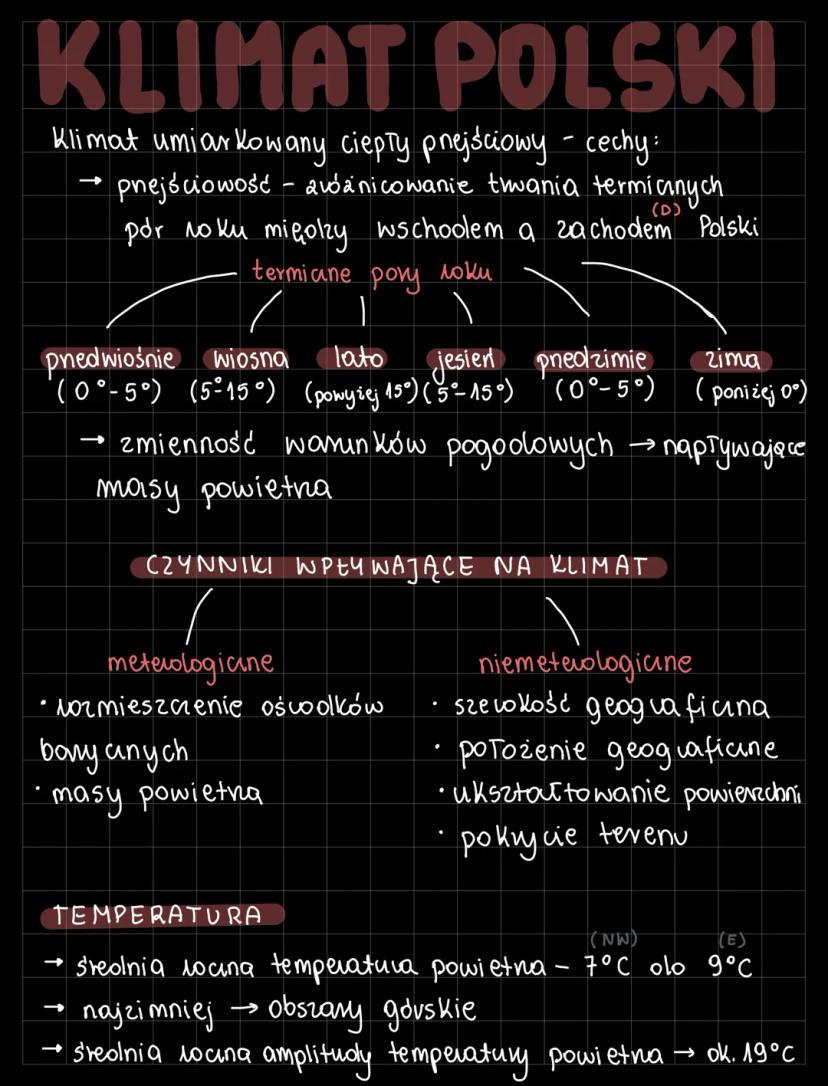 KLIMAT POLSKI
Klimat umiarkowany ciepły przejściowy - cechy:
→ przejściowość - zróżnicowanie trwania termicznych
(D)
pór roku między wschodem a zachodem Polski
termiczne pory roku
przedwiośnie wiosna lato jesień przedzimie zima
(0°-5°) (5°-15°) (powyżej 15°) (5°-15°) (0°-5°) (poniżej 0°)
→ zmienność warunków pogodowych → napływające
masy powietrza
CZYNNIKI WPŁYWAJĄCE NA KLIMAT
meterologiczne niemeterologiczne
· rozmieszczenie ośrodków · szerokość geograficzna
barycznych · położenie geograficzne
· masy powietrza · ukształtowanie powierzchni
· pokrycie terenu
TEMPERATURA
(NW) (E)
→ średnia roczna temperatura powietrza - 7°C do 9°C
→ najzimniej → obszary górskie
→ średnia roczna amplitudy temperatury powietrza → ok. 19°C